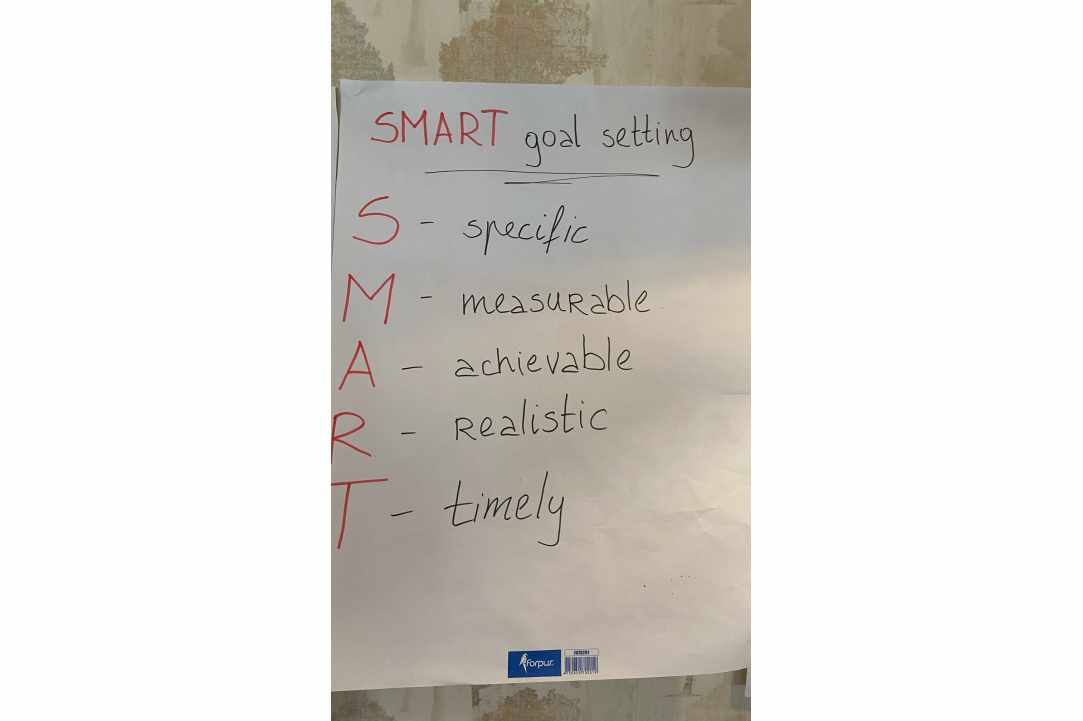 SMART goal setting
S - specific
M - measurable
A - achievable
R - Realistic
T - timely
forpus